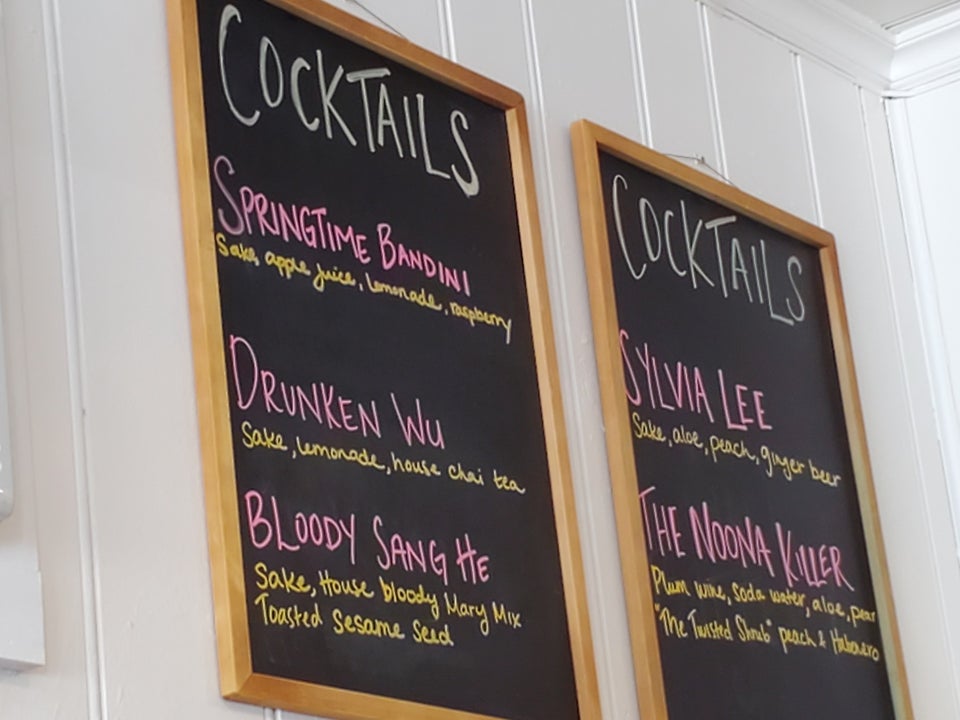 COCKTAILS
SPRINGTIME BANDINI
Sake, apple juice, lemonade, raspberry
DRUNKEN WU
Sake, lemonade, house chai tea
BLOODY SANG HE
Sake, House bloody Mary Mix
Toasted sesame seed
COCKTAILS
SYLVIA LEE
Sake, aloe, peach, ginger beer
THE NOONA KILLER
Plum wine, soda water, aloe, pear
"The Twisted Shrub" peach & Habanero